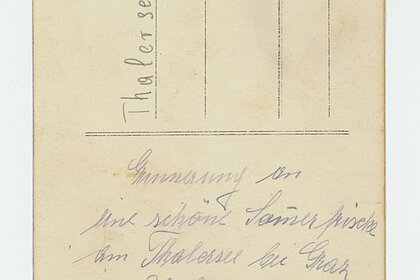 Thalerse
Erinnerung an
eine schöne Som̄erfrische
am Thalersee bei Graz